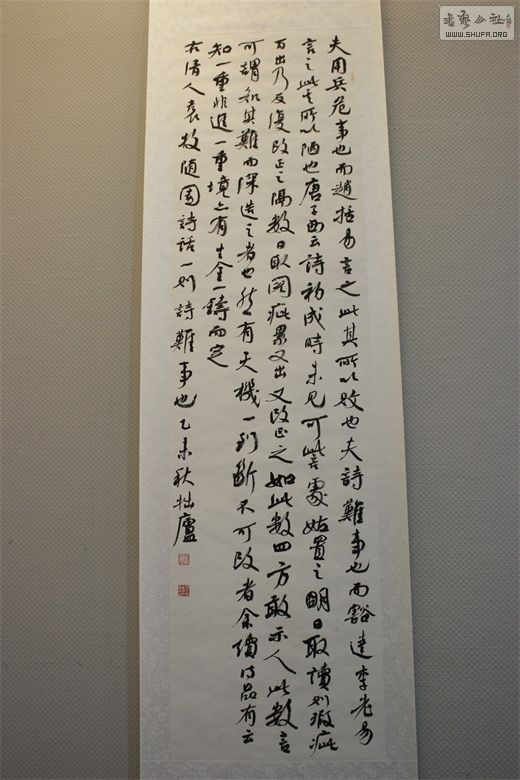 夫用兵危事也而趙括易言之此其所以敗也夫詩難事也而豁達李老易
言之此其所以陋也唐子西云詩初成時未見可訾處姑置之明日取讀則瑕疵
百出乃反復改正之隔數日取閱疵累又出又改正之如此數四方敢示人此數言
可謂知其難而深造之者也然有天機一到斷不可改者余續詩品有云
知一重非進一重境亦有生金一鑄而定
右清人袁枚隨園詩話一則詩難事也乙未秋拙廬
書藝公社
WWW.SHUFA.ORG